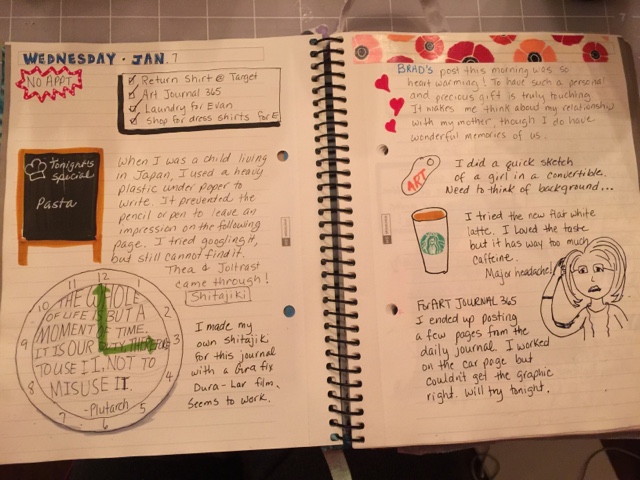 WEDNESDAY · JAN. 7
NO APPT.
Return Shirt @ Target
Art Journal 365
Laundry for Evan
Shop for dress shirts for E
Tonight's
special
Pasta
When I was a child living
in Japan, I used a heavy
plastic under paper to
write. It prevented the
pencil or pen to leave an
impression on the following
page. I tried googling it,
but still cannot find it.
Thea & Joltrast
came through!
Shitajiki
12
1
2
3
4
5
6
7
8
9
10
11
THE WHOLE
OF LIFE IS BUT A
MOMENT OF TIME.
IT IS OUR DUTY, THEREFORE
TO USE IT, NOT TO
MISUSE IT.
-Plutarch
I made my
own shitajiki
for this journal
with a Grafix
Dura-Lar film.
Seems to work.
BRAD'S post this morning was so
heart warming! To have such a personal
and precious gift is truly touching.
It makes me think about my relationship
with my mother, though I do have
wonderful memories of us.
ART
I did a quick sketch
of a girl in a convertible.
Need to think of background...
I tried the new flat white
latte. I loved the taste
but it has way too much
caffeine.
Major headache!
For ART JOURNAL 365
I ended up posting
a few pages from the
daily journal. I worked
on the car page but
couldn't get the graphic
right. Will try tonight.